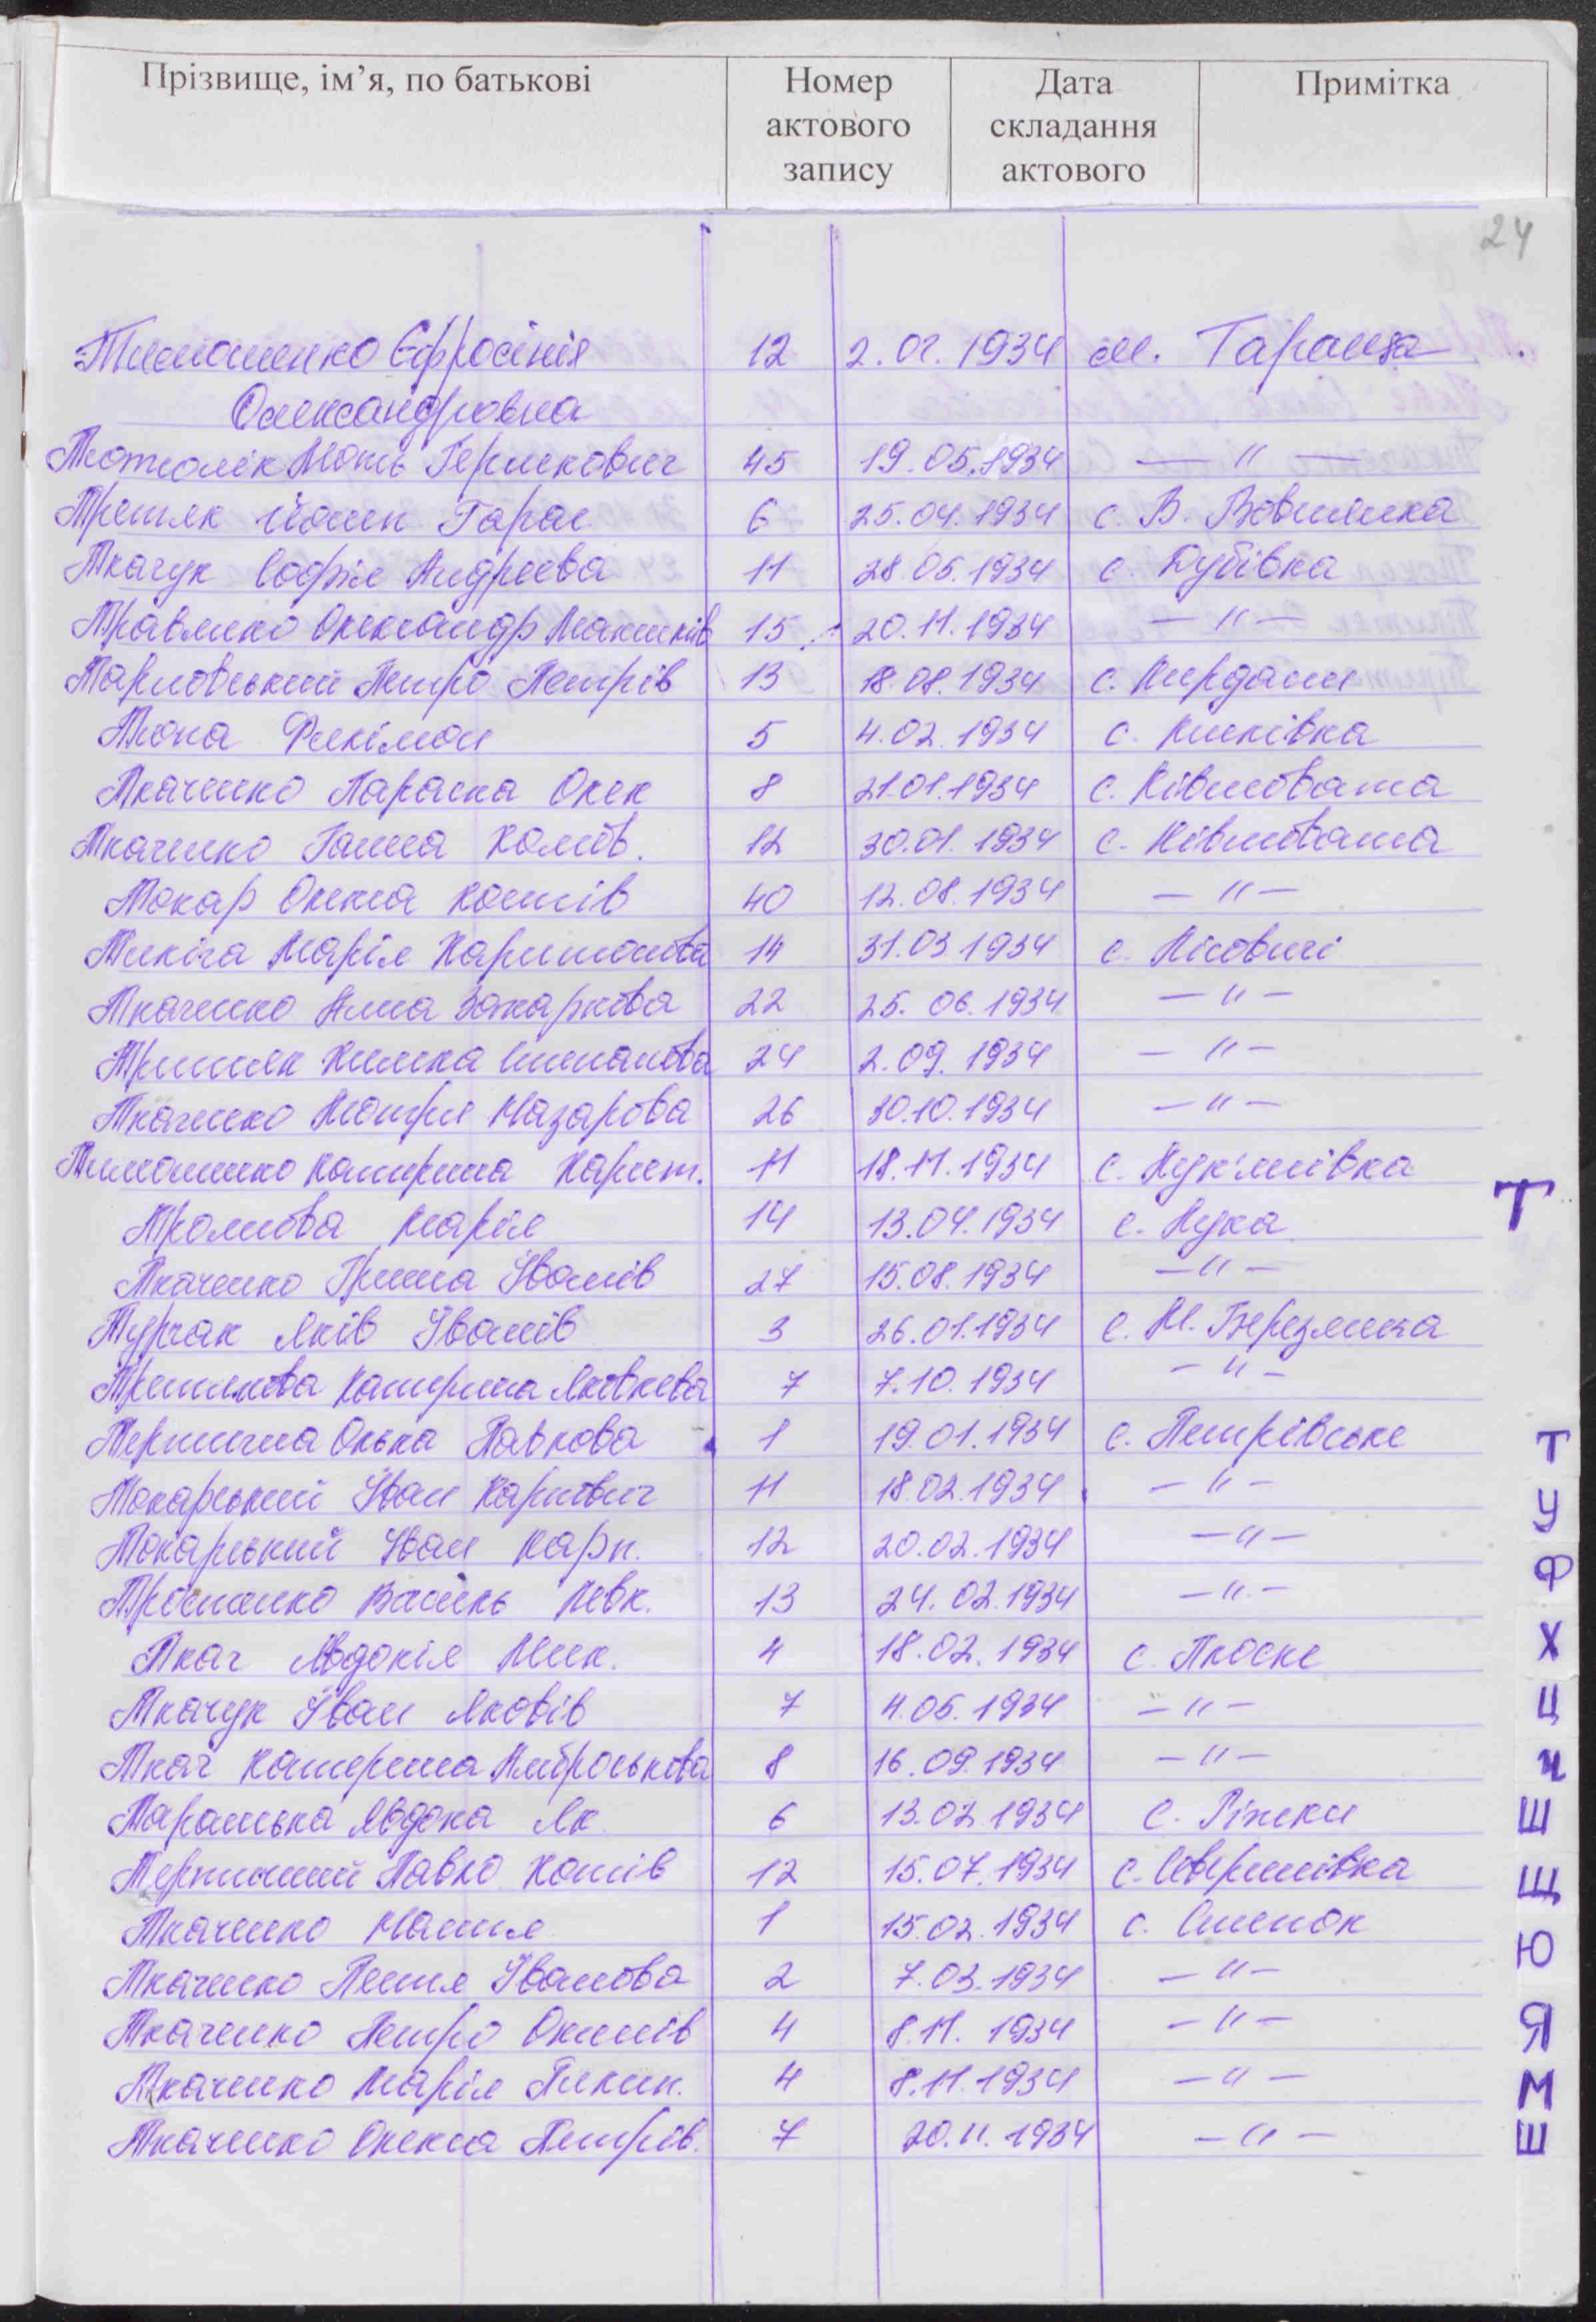 Прізвище, ім’я, по батькові Номер актового запису Дата складання актового Примітка
24
Тимошенко Єфросінія 12 2.01.1934 м. Тараща
Олександровна
Моть Герликович 45 19.05.1934 — " —
Третяк Йосип Тарас 6 25.04.1934 с. В. Вовнянка
Ткачук Софія Андреєва 11 28.05.1934 с. Дубівка
Травянко Олександр 15 20.11.1934 — " —
Тарновський Петро Петрів 13 18.08.1934 с. Кирдани
Филімон 5 4.02.1934 с.
Ткаченко Параска Олек 8 21.01.1934 с. Ківшовата
Ткаченко Ганна 12 30.01.1934 с. Ківшовата
Токар Олекса Костів 40 12.08.1934 — " —
Марія Харитонова 14 31.03.1934 с. Лісовичі
Ткаченко Анна Захаркова 22 25.06.1934 — " —
Химка Степанова 24 2.09.1934 — " —
Ткаченко Мотря Назарова 26 30.10.1934 — " —
Тимошенко Катерина Харит. 11 18.11.1934 с. Лук'янівка
Т
Марія 14 13.04.1934 с. Лука
Ткаченко Гриша Іванів 27 15.08.1934 — " —
Турчак Яків Іванів 3 26.01.1934 с. М. Березянка
Третякова Катерина Яковлева 7 7.10.1934 — " —
Терпигча Олька Павлова 1 19.01.1934 с. Петрівське
Т
Токарський Іван Карпович 11 18.02.1934 — " —
У
Токарський Іван Карп. 12 20.02.1934 — " —
Ф
Василь Левк. 13 24.02.1934 — " —
Х
Ткач Явдокія Мик. 4 18.02.1934 с. Плоске
Ткачук Іван Яковів 7 4.05.1934 — " —
Ц
Ткач Катерина Амброськова 8 16.09.1934 — " —
Ч
Таранька Явдоха Як 6 13.02.1934 с. Ріжки
Ш
Павло 12 15.07.1934 с. Северинівка
Щ
Ткаченко Настя 1 15.02.1934 с. Степок
Ю
Ткаченко Іванова 2 7.03.1934 — " —
Ткаченко Петро 4 8.11.1934 — " —
Я
Ткаченко Марія Пилип. 4 8.11.1934 — " —
М
Ткаченко Олекса Петрів. 7 20.11.1934 — " —
Ш